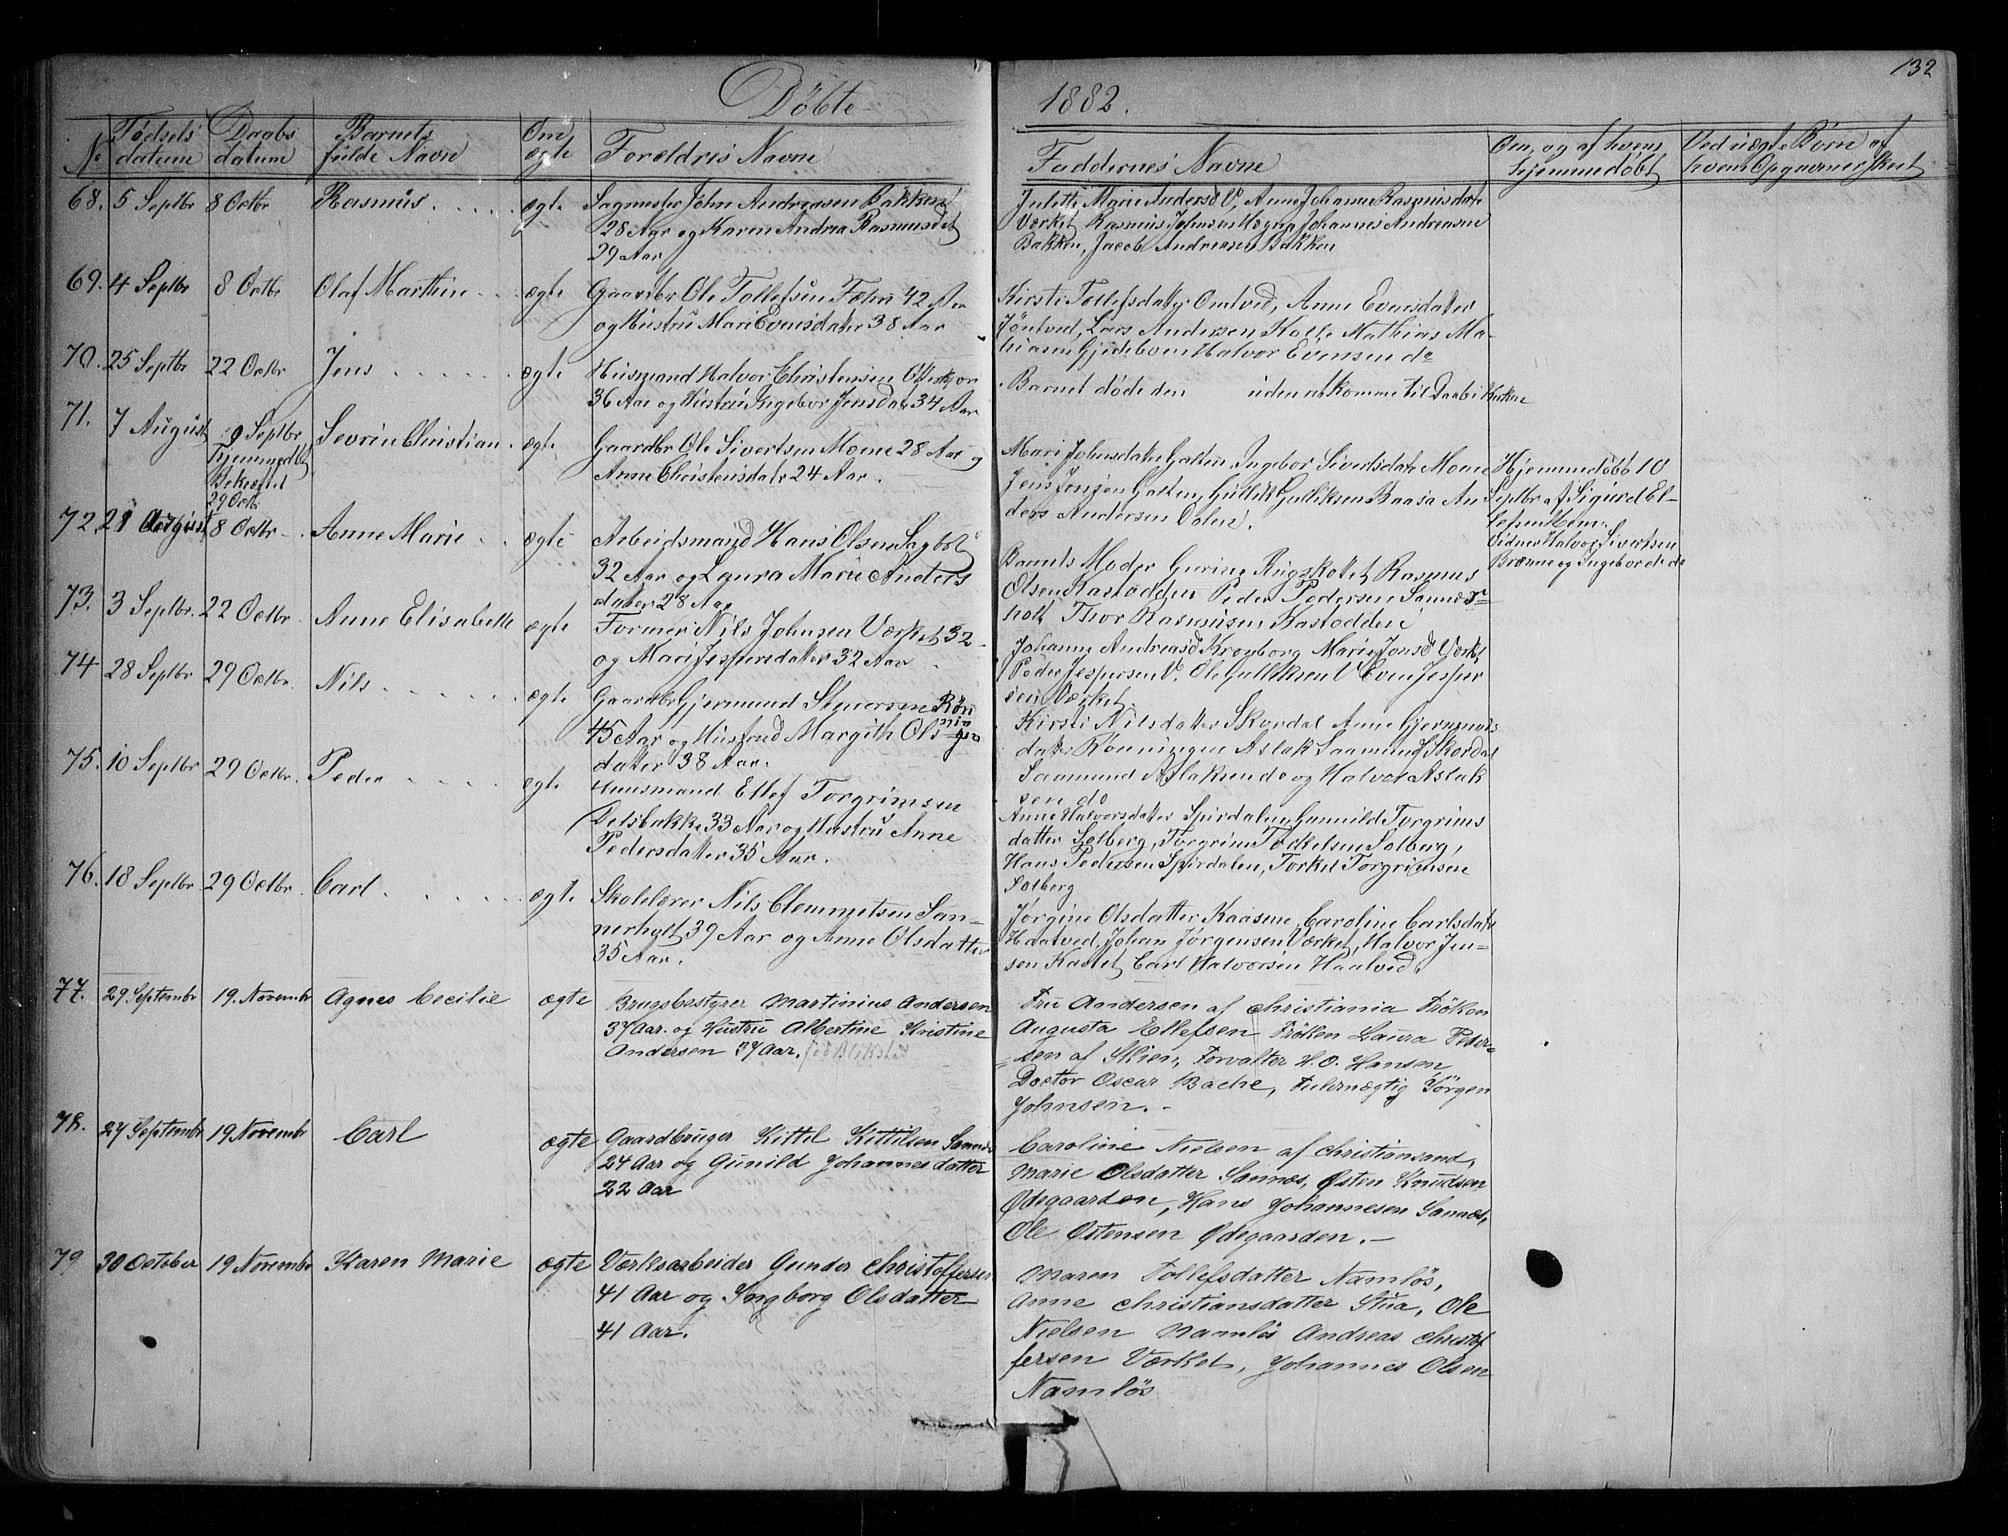 Døbte
1882.
132
No
Fødsels
datum
Daabs
datum
Barnets
fulde Navn
Om
ægte
Forældres Navne
Faddernes Navne
Om, og af hvem
hjemmedøbt
Ved uægte Børn af
hvem Opgaven er skeet
68. 5 Septbr 8 Octbr Rasmus ægte
Sagmester John Andreasen Bakken
28 Aar og Karen Andrea Rasmusdt
29 Aar
Juliette Marie Andersd V. Anne Johanne Rasmusdatr
Værket Rasmus Johnsen Johannes Andreasen
Bakken, Jacob Andreasen Bakken
69. 4 Septbr 8 Octbr Olaf Marthin ægte
Gaardbr Ole Tollefsen 42 Aar
og Hustru Mari Evensdater 38 Aar
Kirsti Tollefsdatr Omtved, Anne Evensdater
Jøntved, Lars Andersen Kolle Mathias Ma-
thiasen Gjedeboen Halvor Evensen do
70. 25 Septbr 22 Octbr Jens ægte
Husmand Halvor Christensen
36 Aar og Hustru Ingebor Jensdat 34 Aar
Barnet døde den uden at komme til Daab i Kirken
71. 7 August 9 Septbr
Hjemmedbt
Bekræftet
29 Octbr
Sevrin Christian ægte
Gaardbr Ole Sivertsen Moene 28 Aar og
Anne Christensdatr 24 Aar.
Mari Johnsdater Galten Ingebor Sivertsdatr Moene
Jens Jensen Galten, Gullik Gulliksen Baasa An-
ders Andersen Dalen.
Hjemmedøbt 10
Septbr af Sigurd El-
lefsen Hem.
Vidner Halvor Sivertsen
Brænne og Ingebor do do
72. 21 August 8 Octbr Anne Marie ægte
Arbeidsmand Hans Olsen Sagbot
32 Aar og Laura Marie Anders
dater 28 Aar
Barnets Moder Gurine Rasmus
Olsen Kastodden Peder Pedersen Sannes-
holt Thor Rasmusen Kastodden
73. 3 Septbr. 22 Octbr. Anne Elisabeth ægte
Former Nils Johnsen Værket 32
og Mari Jespersdater 32 Aar
Johanne Andreasd Kronborg Marie Jonsd Værkt
Peder Jespersen V. Ole Gulliksen V Even Jesper
sen Værket
74 28 Septbr 29 Octbr. Nils ægte
Gaardbr Gjermund Røn
nin
gen
45 Aar og Husfrud Margith Ols
dater 38 Aar.
Kirsti Nilsdater Skordal Anne Gjermunds
dater Rønningen Aslak Saamundsen Skordal
Saamund Aslaksen do og Halvor Aslak
sen do
75. 10 Septbr 29 Octbr. Peder ægte
Huusmand Ellef Torgrimsen
Delsbakke 33 Aar og Hustru Anne
Pedersdater 35 Aar.
Anne Halvorsdater Spirdalen, Gunnild Torgrims
datter Solberg, Torgrim Torkelsen Solberg,
Hans Pedersen Spirdalen, Torkel Torgrimsen
Solberg
76. 18 Septbr. 29 Octbr. Carl ægte
Skolelærer Nils Clemmetsen San-
nerholt 39 Aar og Anne Olsdatter
35 Aar.
Jørgine Olsdatter Kaasene, Caroline Carlsdatr
Haatved, Johan Jørgensen Værket, Halvor Jen-
sen Kastet Carl Halvorsen Haatved.
77. 29 Septembr 19. Novembr Agnes Cecilie ægte
Brugsbestyrer Martinius Andersen
37 Aar. og Hustru Albertine Kristine
Andersen 37 Aar. født Blikstad
Fru Andersen af Christiania Frøken
Augusta Ellefsen Frøken Laura Peder-
sen af Skien, Forvalter H. O. Hansen,
Doctor Oscar Bache, Fulmægtig Jørgen
Johnsen.-
78. 27 Septembr 19 Novembr Carl ægte
Gaardbruger Kittel Kittilsen Sannes
24 Aar og Gunild Johannesdatter
22 Aar
Caroline Nielsen af Christiansand,
Marie Olsdatter Sannes, Østen Knudsen
Ødegaarden, Hans Johannesen Sannes,
Ole Østensen Ødegaarden.-
79 30 October 19 Novembr Karen Marie ægte
Værksarbeider Gunder Christoffersen
41 Aar og Ingborg Olsdatter
41 Aar.
Maren Tollefsdatter Namløs,
Anne Christiansdatter Stua, Ole
Nielsen Namløs Andreas Christof
fersen Værket, Johannes Olsen
Namløs